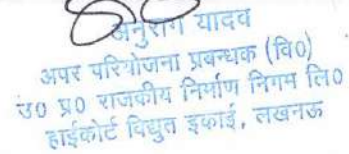 अनुराग यादव
अपर परियोजना प्रबन्धक (वि0)
उ0 प्र0 राजकीय निर्माण निगम लि0
हाईकोर्ट विद्युत इकाई, लखनऊ